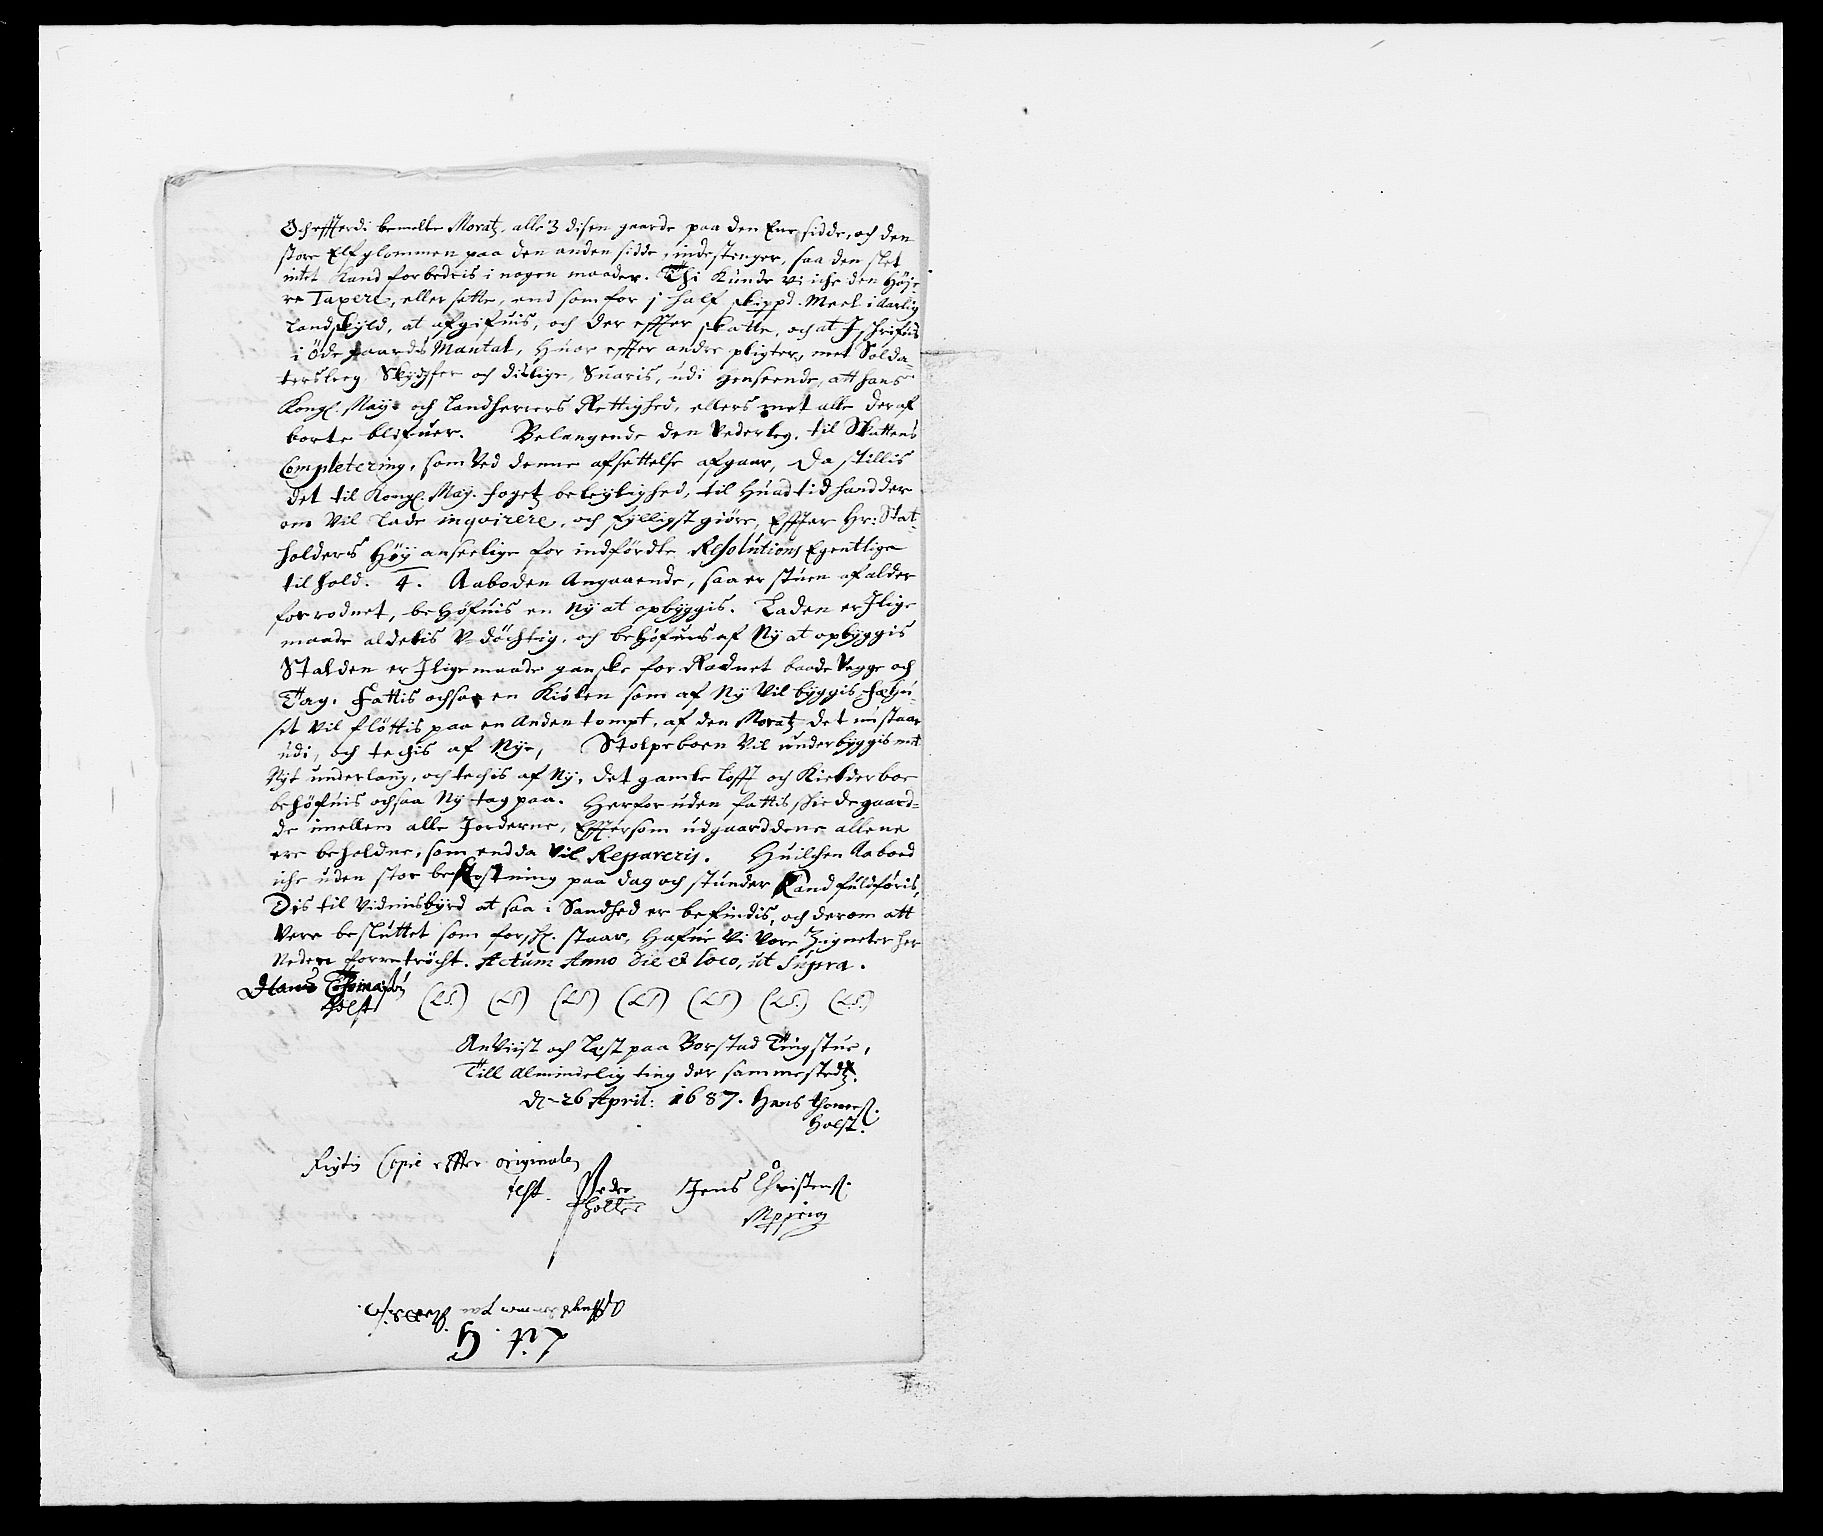 Och efftterdi bemelte Moratz, alle 3 disen gaarde paa den Ene sidde, och den
store Elf glommen paa den anden sidde, indestenger, saa den slet
intet Kand forbedris i nogen maader. Thi Kunde vi iche den Høje-
re Taxere, eller sette, end som for j half skippd. Meel i Aarlig
Landskyld, at afgifuis, och der effter skatte, och at Jschrifuis
i Øde gaards Mantal, Huor effter andre pligter, met Solda-
terslæg, Skydzfer och dislige, Suaris, udi Henseende, att hans
Kongl. May: och Landherrers Rettighed, ellers met alle deraf
borte blifuer. Belangende den Vederleg, til Skattens
Completering, som Ved denne afsettelse afgaar, Da stillis
det til Kongl. May. foget beleylighed, til Huad tid hand der
om Vil Lade inqvirere, och fylligst giøre, Effter Hr: Stat-
holders Høy anseelige for indførdte Resolutions Egentlige
til hold. 4. Aaboden Angaaende, saa er stuen af alder
forrodnet, behøfuis en Ny at opbyggis. Laden er Jlige
maade aldelis V-døchtig, och behøfuis af Ny at opbyggis
Stalden er Jlige maade ganske for Raadnet baade Vegge och
Tag. Fattis ochsaa en Kiølen som af Ny Vil byggis, Fæhu-
set Vil fløttis paa en Anden tompt, af den Moratz det nu staar
udi, och techis af Nye, Stolpeboen Vil underbyggis met
Nyt underlaug, och techis af Ny, det gamle Lofft och Kielderboe
behøfuis ochsaa Ny tag paa. Herforuden fattis skiedegaard-
de imellem alle Jorderne, Efftersom udgaarddene allene
ere beholdne, som endda Vil Repareris. Huilchen Aaboed
iche uden stor bekostning paa dag och stunder Kand fuldføris,
Dis til Vidnisbyrd at saa i Sandhed er befindis, och derom att
Vere besluttet som forschr. staar, Hafue Vi Vore Zigneter her
Neden forretrøcht. Actum Anno Die et Loco, ut Supra.
Hans Thomasøn
Holst (LS) (LS) (LS) (LS) (LS) (LS.) (LS.)
AnViist och Læst paa Borstad Tingstue,
Till Almindelig ting der sammestedtz.
d. 26 April: 1687. Hans Thomess.
Holst.
Rigtig Copie effter originalen
test. Pedre Jens Christenss.
Holter
Lit. G